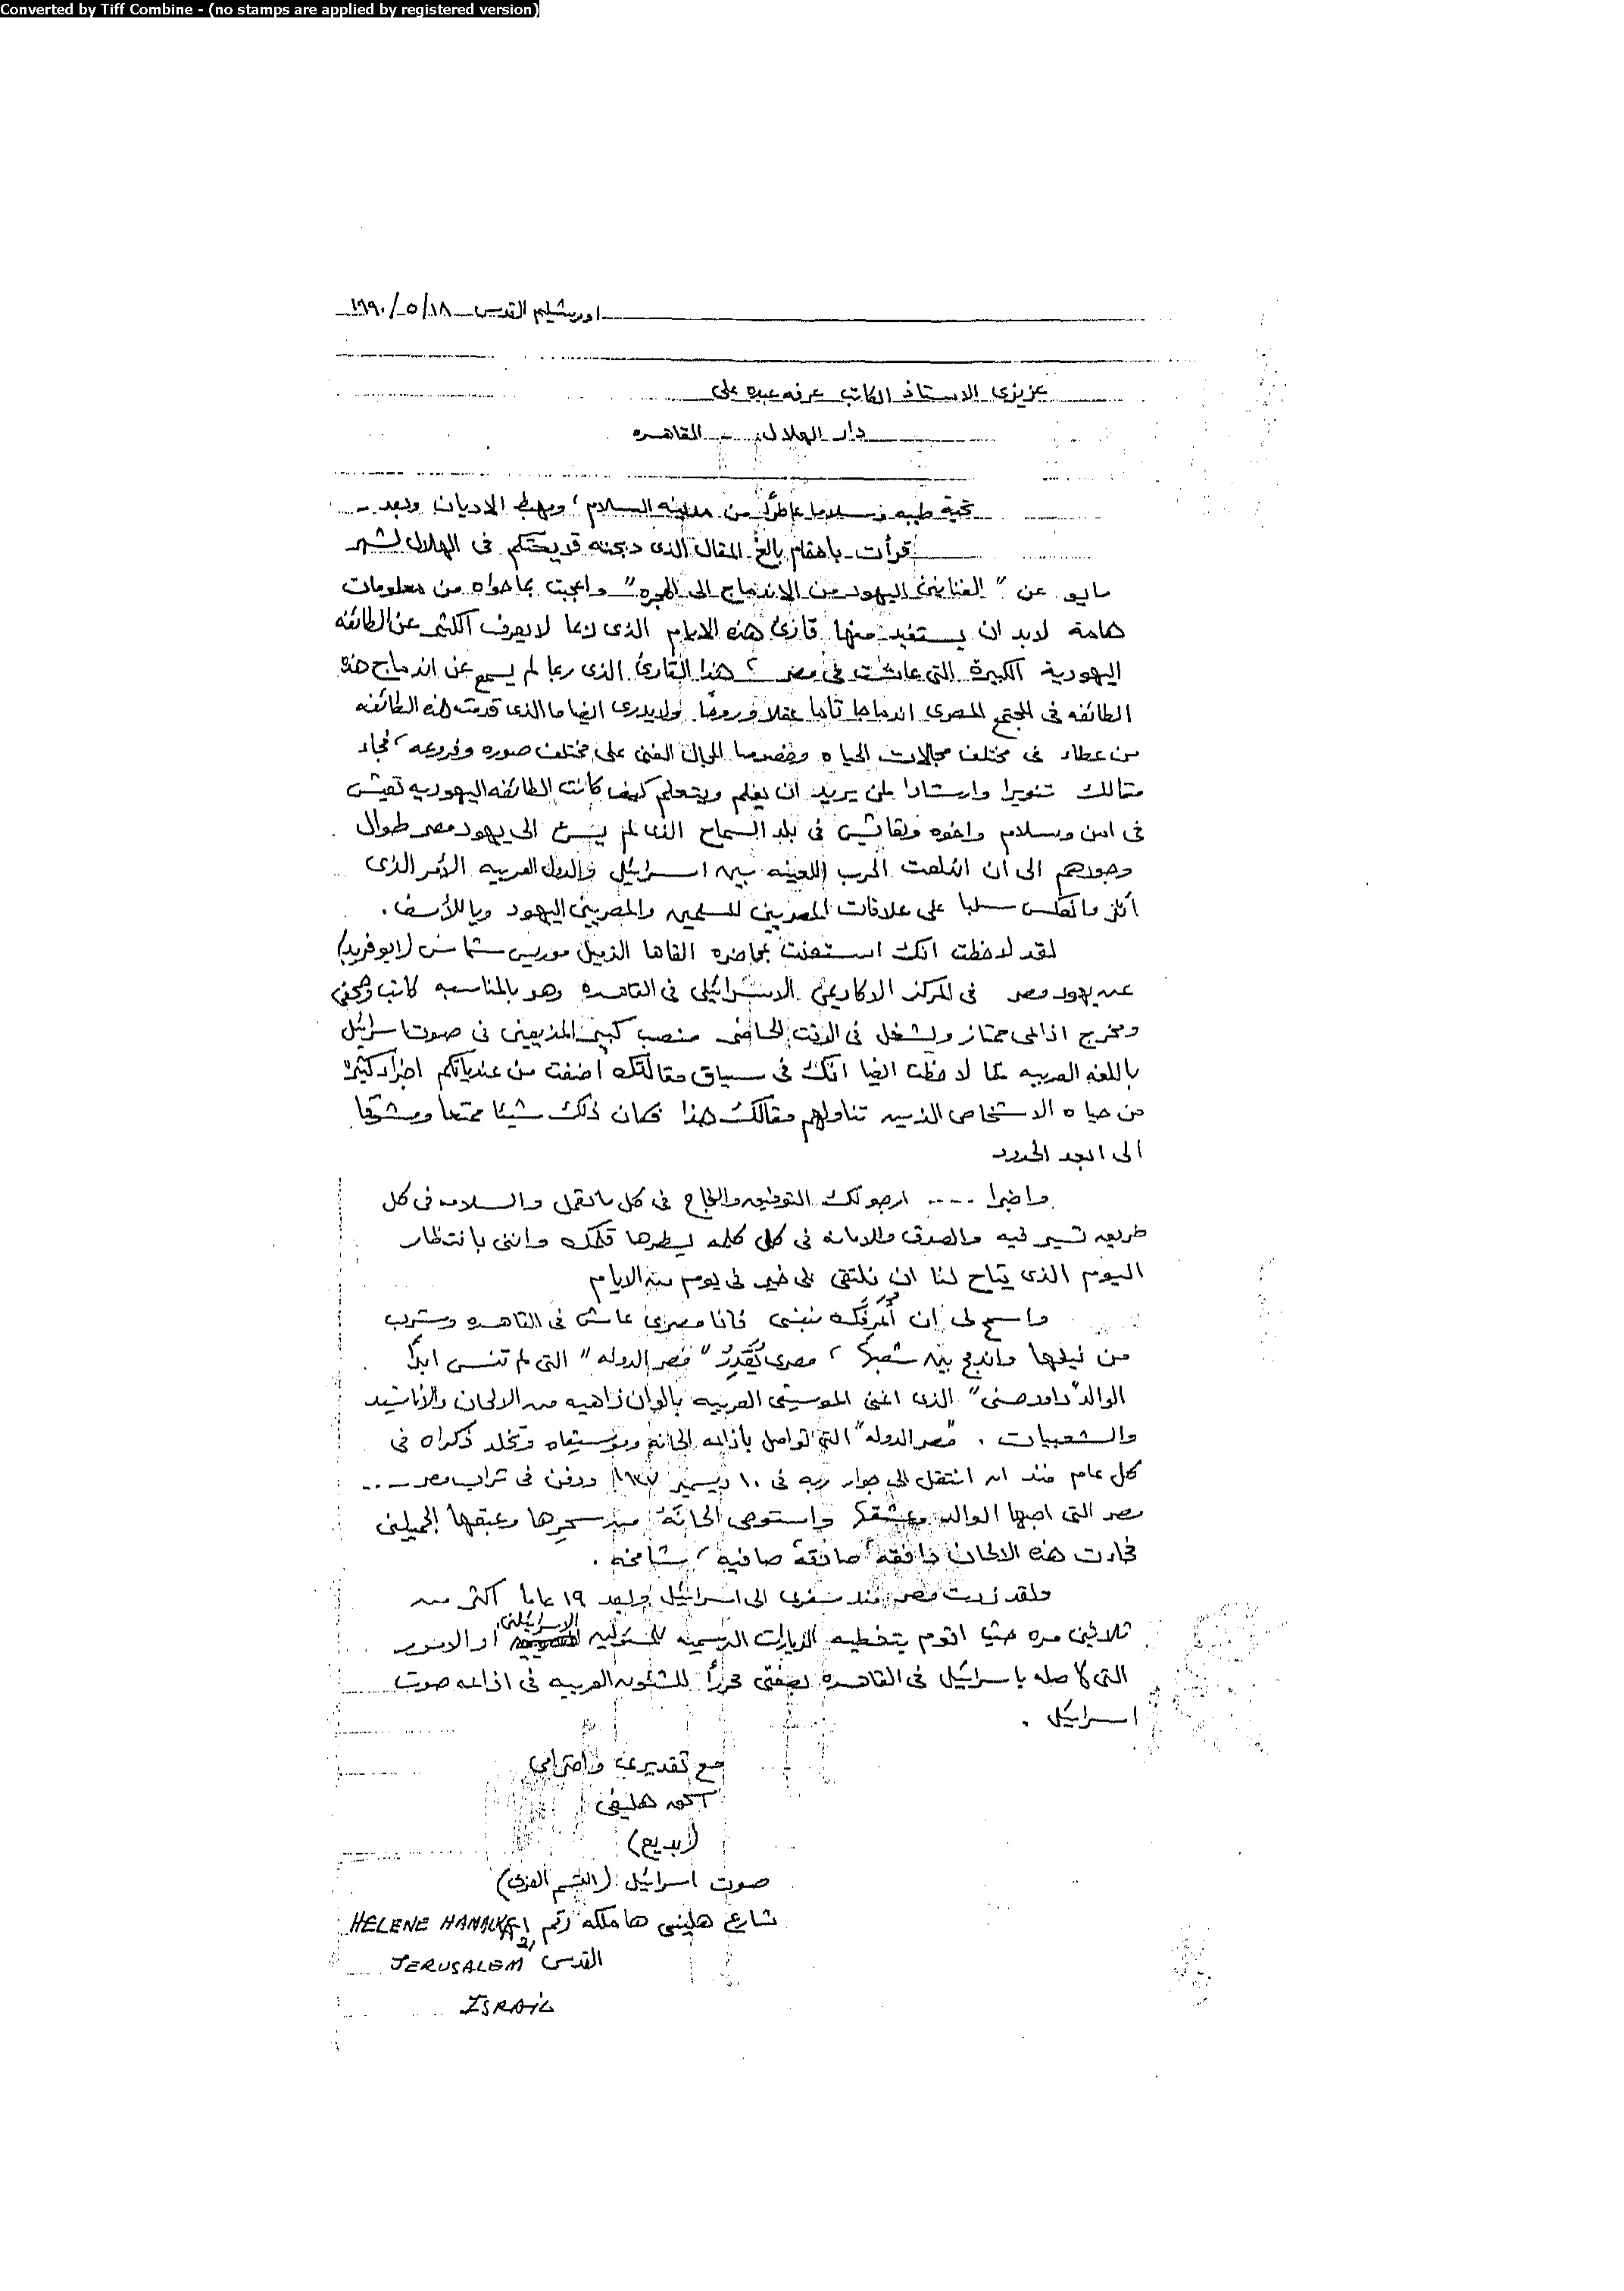 Converted by Tiff Combine - (no stamps are applied by registered version)
اورشليم القدس ١٩٩٠/٥/١٨
عزيزى الاستاذ الكاتب عرفه عبده على
دار الهلال - القاهره
تحية طيبه وسلاما عاطرًا من مدينه السلام، ومهبط الاديان وبعد -
قرأت باهتمام بالغ المقال الذى دبجته قريحتكم فى الهلال لشهر
مايو عن "الفنانين اليهود من الاندماج الى الهجره" واعجبت بما حواه من معلومات
هامة لابد ان يستفيد منها قارئ هذه الايام الذى ربما لا يعرف الكثير عن الطائفه
اليهودية الكبيرة التى عاشت فى مصر، هذا القارئ الذى ربما لم يسمع عن اندماج هذه
الطائفه فى المجتمع المصرى اندماجا تاما عقلا وروحًا ولا يدرى ايضا ما الذى قدمته هذه الطائفه
من عطاء فى مختلف مجالات الحياه وخصوصا المجال الفنى على مختلف صوره وفروعه، فجاء
مقالك تنويرا وارشادا لمن يريد ان يعلم ويتعلم كيف كانت الطائفه اليهوديه تعيش
فى امن وسلام واخوه وتعايش فى بلد السماح الذى لم يسئ الى يهود مصر طوال
وجودهم الى ان اندلعت الحرب اللعينه بين اسرائيل والدول العربيه الأمر الذى
أثر وانعكس سلبا على علاقات المصريين المسلمين والمصريين اليهود وياللأسف.
لقد لاحظت انك استعنت بمحاضره القاها الزميل موريس شماس (ابو فريد)
عن يهود مصر فى المركز الاكاديمى الاسرائيلى فى القاهره وهو بالمناسبه كاتب وصحفى
ومخرج اذاعى ممتاز ويشغل فى الوقت الحاضر منصب كبير المذيعين فى صوت اسرائيل
باللغه العربيه كما لاحظت ايضا انك فى سياق مقالتك اضفت من عندياتكم اجزاء كثيرة
من حياه الاشخاص الذين تناولهم مقالك هذا فكان ذلك شيئا ممتعا ومشوقا
الى ابعد الحدود
واخيرا .... ارجو لك التوفيق والنجاح فى كل ما تعمل والسلامه فى كل
طريق تسير فيه والصدق والامانه فى كل كلمه يسطرها قلمك واننى بانتظار
اليوم الذى يتاح لنا ان نلتقى على خير فى يوم من الايام
واسمح لى ان أعرفك بنفسى فانا مصرى عاش فى القاهره وشرب
من نيلها واندمج بين شعبها، مصرى يُقَدِّرُ "مصر الدوله" التى لم تنسى ابدًا
الوالد "داود حسنى" الذى اغنى الموسيقى العربيه بالوان زاهيه من الالحان والاناشيد
والشعبيات. "مصر الدوله" التى تواصل باذاعه الحانه وموسيقاه وتخلد ذكراه فى
كل عام منذ ان انتقل الى جوار ربه فى ١٠ ديسمبر ١٩٣٧ ودفن فى تراب مصر ...
مصر التى احبها الوالد وعشقها واستوحى الحانهُ من سحرها وعبقها الجميلين
فجاءت هذه الالحان دافقه صادقة صافيه، شامخه.
ولقد زرت مصر منذ سفرى الى اسرائيل وبعد ١٩ عاما اكثر من
ثلاثين مره حيث اقوم بتغطيه الزيارات الرسميه للمسئولين الاسرائيلين او الامور
التى لها صله باسرائيل فى القاهره بصفتى محررًا للشئون العربيه فى اذاعه صوت
اسرائيل.
مع تقديرى واحترامى
(بديع)
صوت اسرائيل (القسم العربى)
شارع هلينى هاملكه رقم ٢١ HELENE HAMALKA
القدس JERUSALEM
ISRAIL